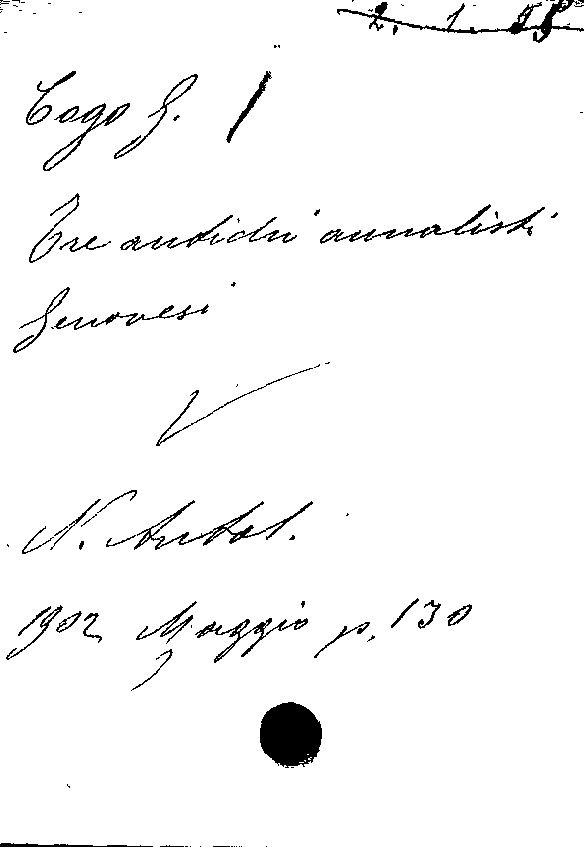 2. 1.
Cogo G.
Tre antichi annalisti
Genovesi
N. Antol.
1902 Maggio p. 130